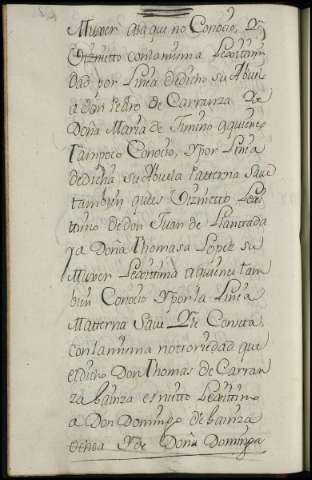 Muxer aqa qui no Conocio, Y es
Viznietto con la misma Lexitimi
dad por Linea de dicho su Abue
a don Pedro de Carranza Y de
Doña Maria de Timino a quienes
tampoco Conocio, Y por Linea
de dicha su Abuela Patterna save
tambien que es Viznietto Lexi
timo de don Juan de Llantada
Ya Doña Thomasa Lopez su
Muxer Lexittima a quienes tam
bien Conocio Y por la Linea
Matterna Save Y le Consta,
con la misma nottoriedad que
el dicho Don Thomas de Carran
za bainza es nietto Lexittimo
a Don Domingo de bainza
Ochoa Y de Doña Dominga